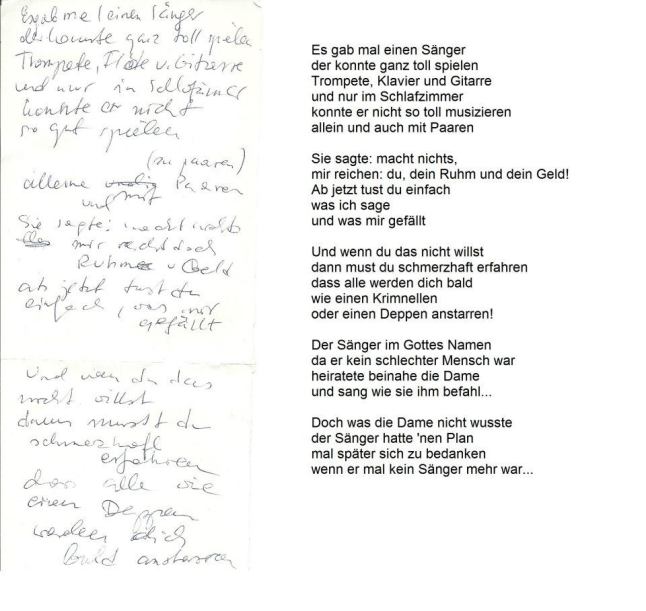 Es gab mal einen Sänger
der konnte ganz toll spielen
Trompete, Flöte u. Gitarre
und nur im Schlafzimmer
konnte er nicht
so gut spielen
(zu paaren)
alleine Paaren
und mit
Sie sagte: macht nichts
mir reicht doch
Ruhm u Geld
ab jetzt tust du
einfach, was mir
gefällt
Und wenn du das
nicht willst
dann musst du
schmerzhaft
erfahren
das alle wie
einen Deppen
werden dich
bald anstarren
Es gab mal einen Sänger
der konnte ganz toll spielen
Trompete, Klavier und Gitarre
und nur im Schlafzimmer
konnte er nicht so toll musizieren
allein und auch mit Paaren
Sie sagte: macht nichts,
mir reichen: du, dein Ruhm und dein Geld!
Ab jetzt tust du einfach
was ich sage
und was mir gefällt
Und wenn du das nicht willst
dann must du schmerzhaft erfahren
dass alle werden dich bald
wie einen Krimnellen
oder einen Deppen anstarren!
Der Sänger im Gottes Namen
da er kein schlechter Mensch war
heiratete beinahe die Dame
und sang wie sie ihm befahl...
Doch was die Dame nicht wusste
der Sänger hatte 'nen Plan
mal später sich zu bedanken
wenn er mal kein Sänger mehr war...